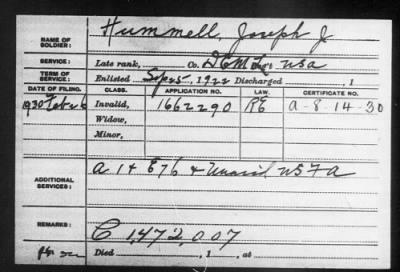 NAME OF SOLDIER: Hummell, Joseph J
SERVICE: Late rank, Co. D E M L Regt USA
TERM OF SERVICE: Enlisted Sep 25, 1922 Discharged , 1
DATE OF FILING. CLASS. APPLICATION NO. LAW. CERTIFICATE NO.
1930 Feb 26 Invalid, 1662290 RE A-8-14-30
Widow,
Minor,
ADDITIONAL SERVICES: A 14 & 76 & Unassd, US F A
REMARKS: C 1,472,007
Died , 1 , at